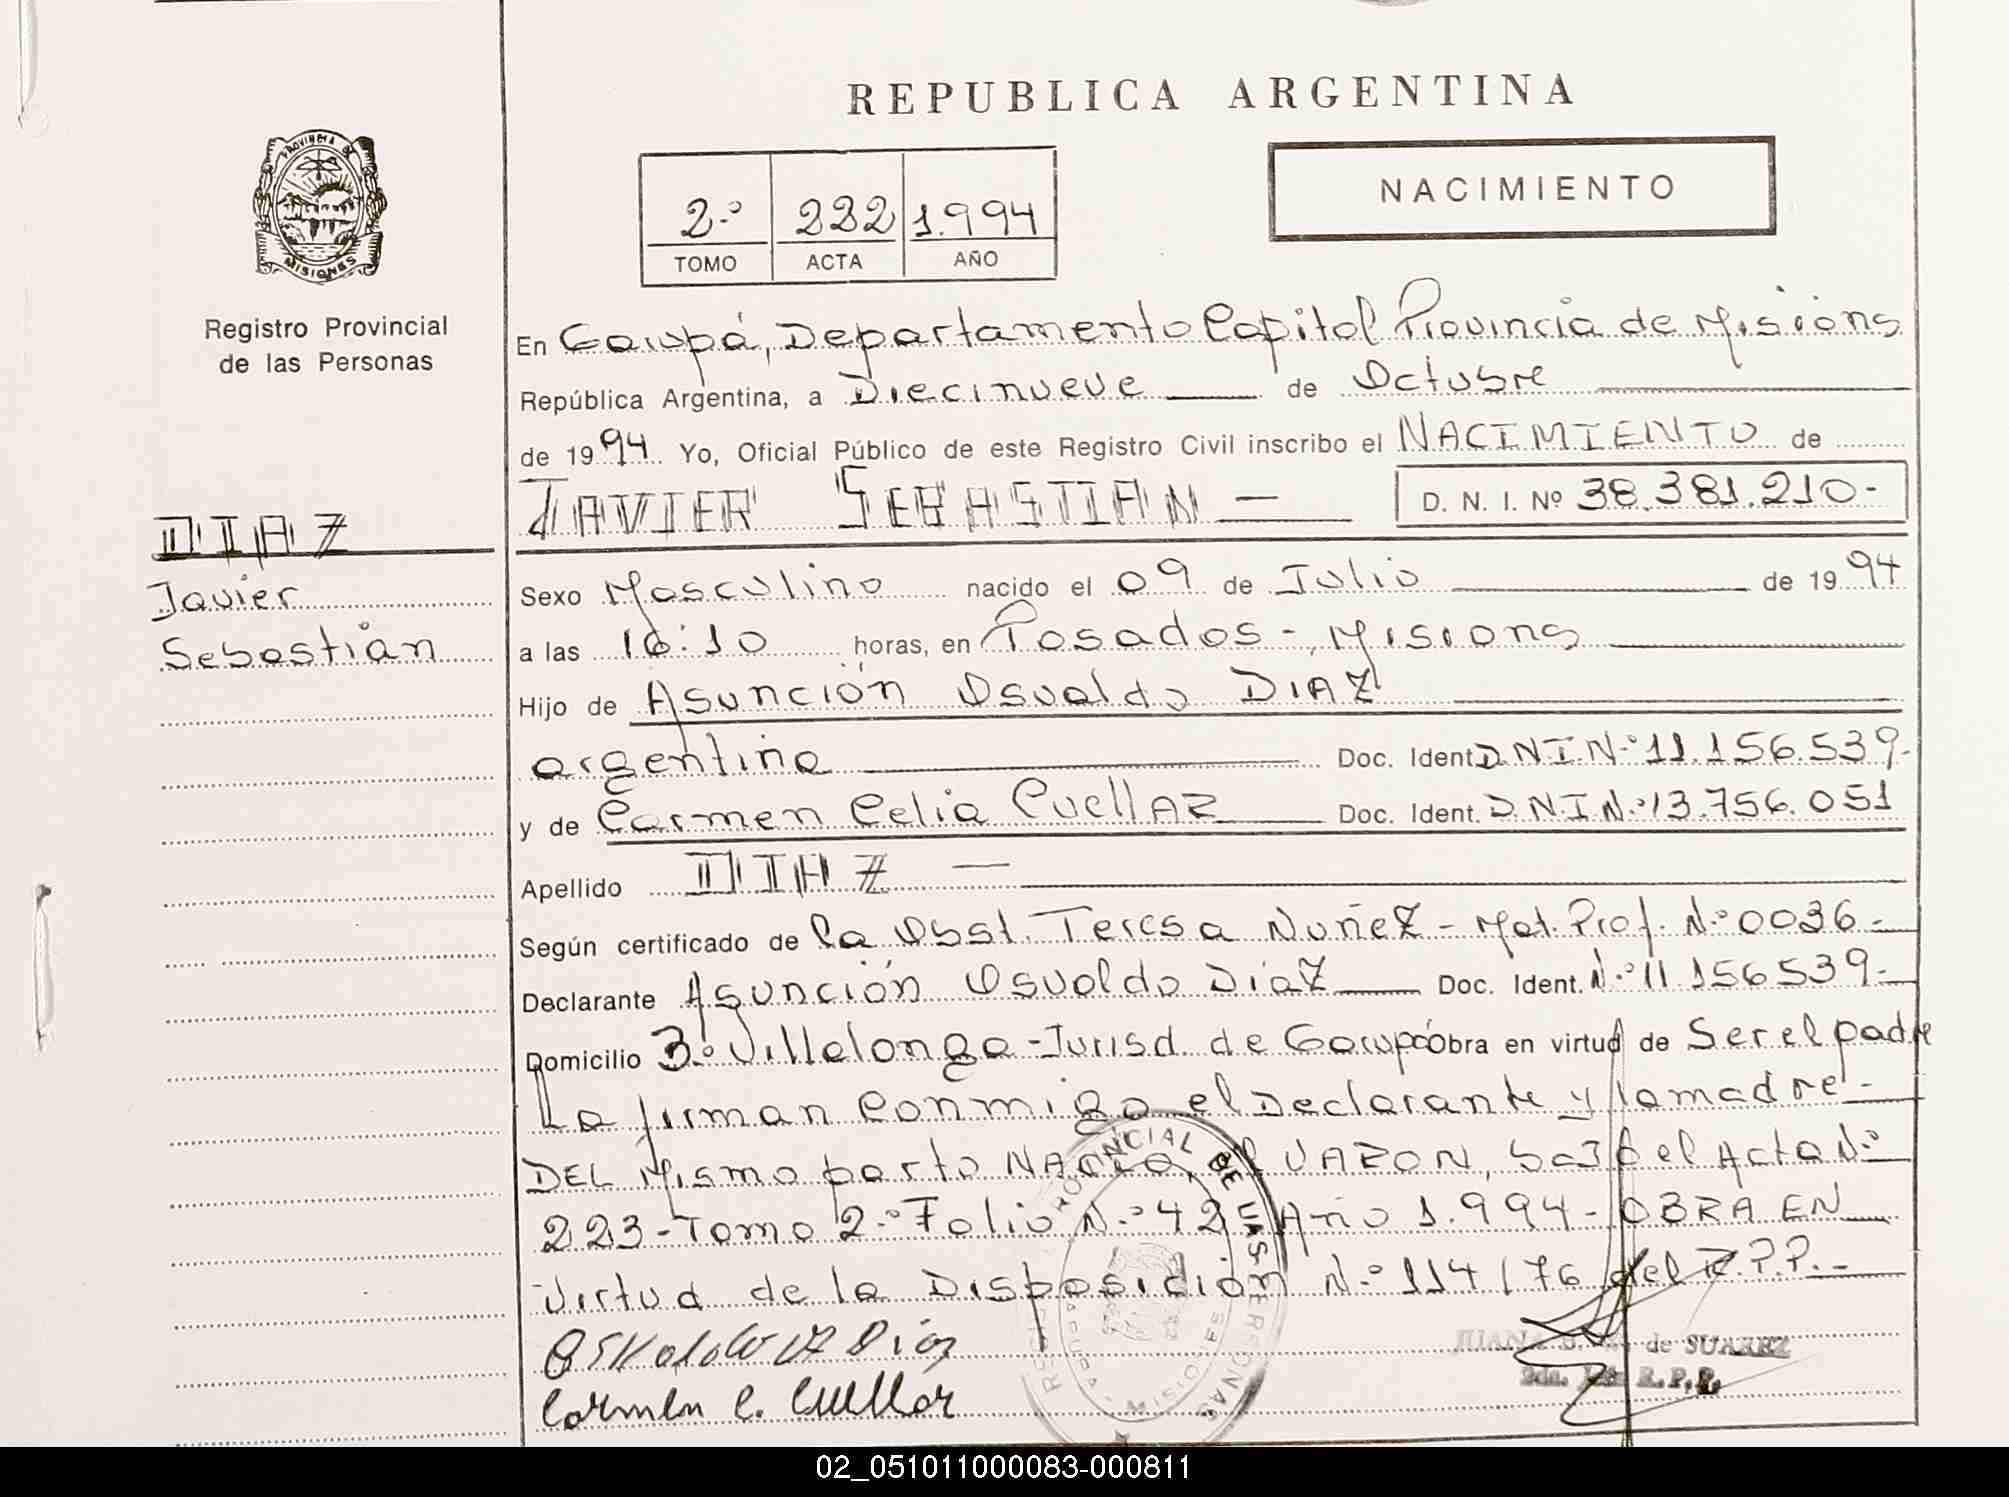 REPUBLICA ARGENTINA
PROVINCIA DE MISIONES
Registro Provincial
de las Personas
2.º 222 1.994
TOMO ACTA AÑO
NACIMIENTO
En Garupá, Departamento Capital Provincia de Misiones
República Argentina, a Diecinueve de Octubre
de 1994. Yo, Oficial Público de este Registro Civil inscribo el NACIMIENTO de
JAVIER SEBASTIAN — D. N. I. Nº 38.381.210-
DIAZ
Javier
Sebastián
Sexo Masculino nacido el 09 de Julio de 1994
a las 16:10 horas, en Posadas-, Misiones
Hijo de Asunción Osvaldo DIAZ
argentina Doc. Ident. D.N.I.N.º 11.156.539.-
y de Carmen Celia CuellAR Doc. Ident. D.N.I.N.º 13.756.051
Apellido DIAZ —
Según certificado de la Obst. Teresa Nuñez - Mat. Prof. N.º 0036.-
Declarante Asunción Osvaldo DíaZ Doc. Ident. N.º 11.156539.-
Domicilio 3.º Villalonga - Jurisd. de Garupá Obra en virtud de Ser el padre
La firman conmigo el Declarante y la madre.-
DEL Mismo parto NACIO, VARON, bajo el Acta N.º
223-Tomo 2.º Folio N.º 42 Año 1.994- OBRA EN
Virtud de la Disposición N.º 114/76 del R.P.P.-
Diaz
Carmen C. Cuellar
JUANA de SUAREZ
R.P.P.
02_051011000083-000811